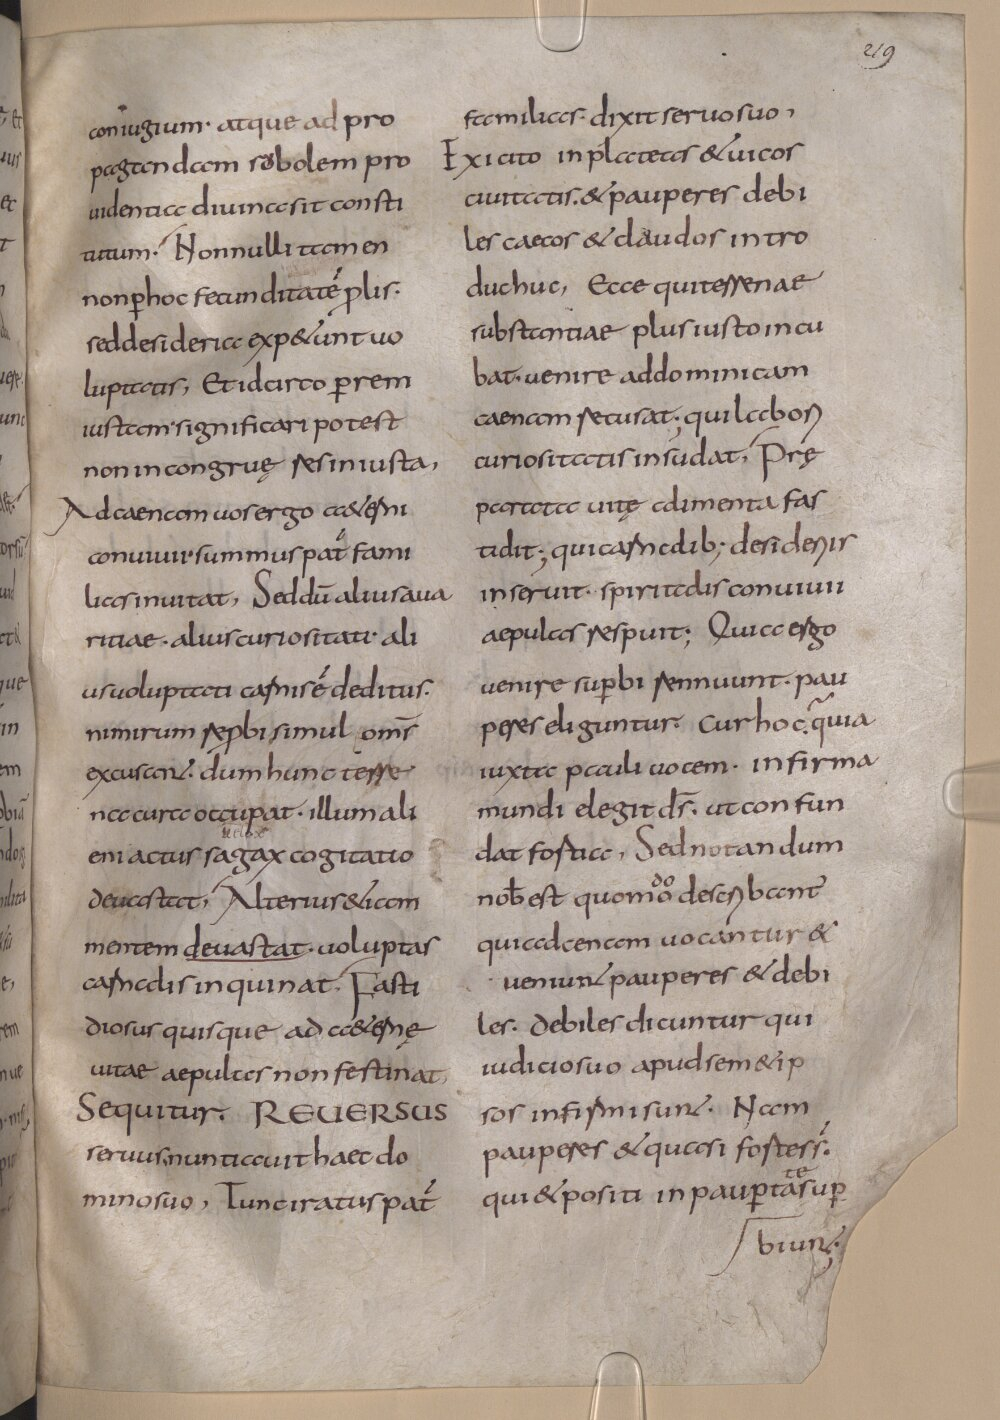 219
coniugium· atque ad pro
pagandam sobolem pro
uidentia diuina sit consti
tutum· Non nulli tamen
non ꝑ hoc fecunditatē prolis·
sed desideria expetunt uo
luptatis, Et idcirco ꝑ rem
iustam· significari potest
non incongruę res iniusta,
Ad caenam uos ergo aeterni
conuiuii· summus pat̄ fami
lias inuitat, Sed dū alius aua
ritiae· alius curiositati· ali
us uoluptati carnis ē deditus·
nimirum reprobi simul om̄s
excusant· dum hunc terre
na cura occupat· illum ali
uelox
eni actus sagax cogitatio
deuastat, Alterius etiam
mentem deuastat· uoluptas
carnalis inquinat· Fasti
diosus quisque ad aeternę
uitae aepulas non festinat,
Sequitur· REUERSUS
seruus, nuntiauit haec do
mino suo, Tunc iratus pat̄
familias· dixit seruo suo,
Exi cito in plateas & uicos
ciuitatis· & pauperes debi
les caecos & claudos intro
duc huc, Ecce qui terrenae
substantiae plus iusto incu
bat· uenire ad dominicam
caenam recusat; qui labori
curiositatis insudat, Prę
parata uitę alimenta fas
tidit; qui carnalib; desideriis
inseruit· spiritalis conuiuii
aepulas respuit; Quia ergo
uenire suꝑbi rennuunt· pau
peres eliguntur· Cur hoc, quia
iuxta pauli uocem· infirma
mundi elegit d̄s· ut confun
dat fortia, Sed notandum
nob̄ est quomodo describant̄
qui ad caenam uocantur &
ueniunt pauperes & debi
les· debiles dicuntur qui
iudicio suo apud semetip
sos infirmi sunt· Nam
pauperes & quasi fortes s̄·
qui & positi in pauꝑtate suꝑ
biunt·